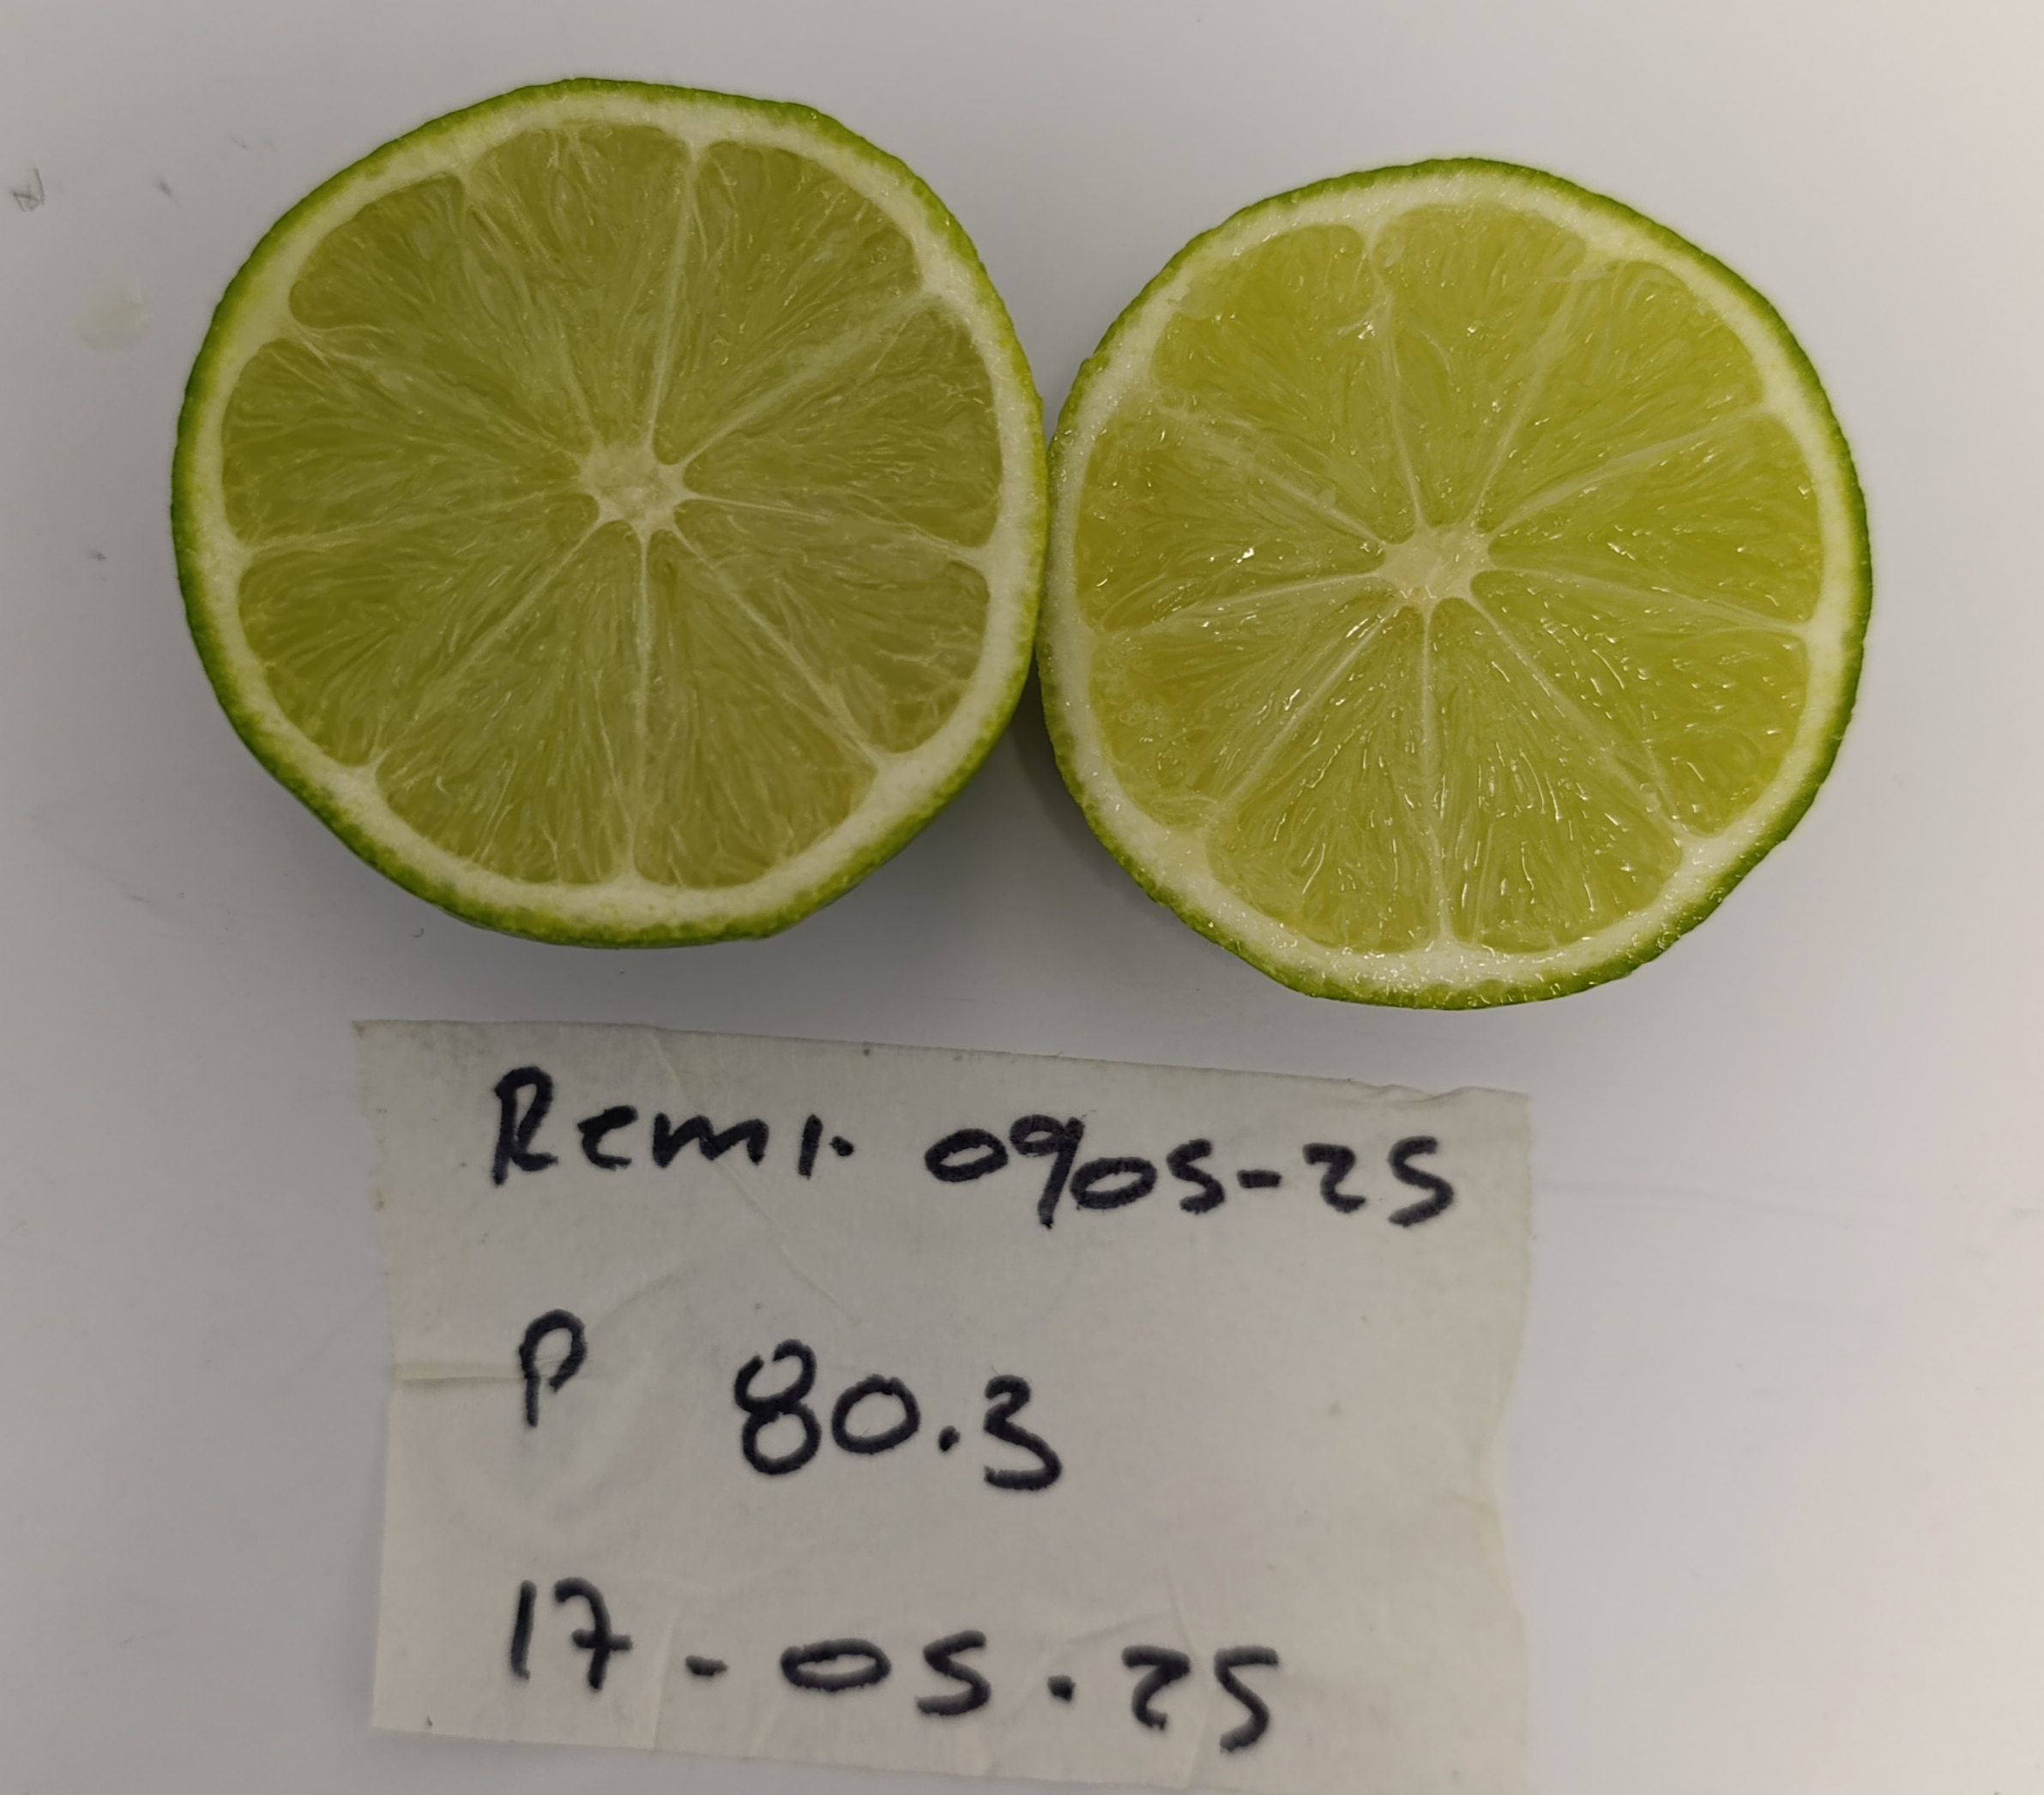 Remi. 0905-25
P 80.3
17-05-25